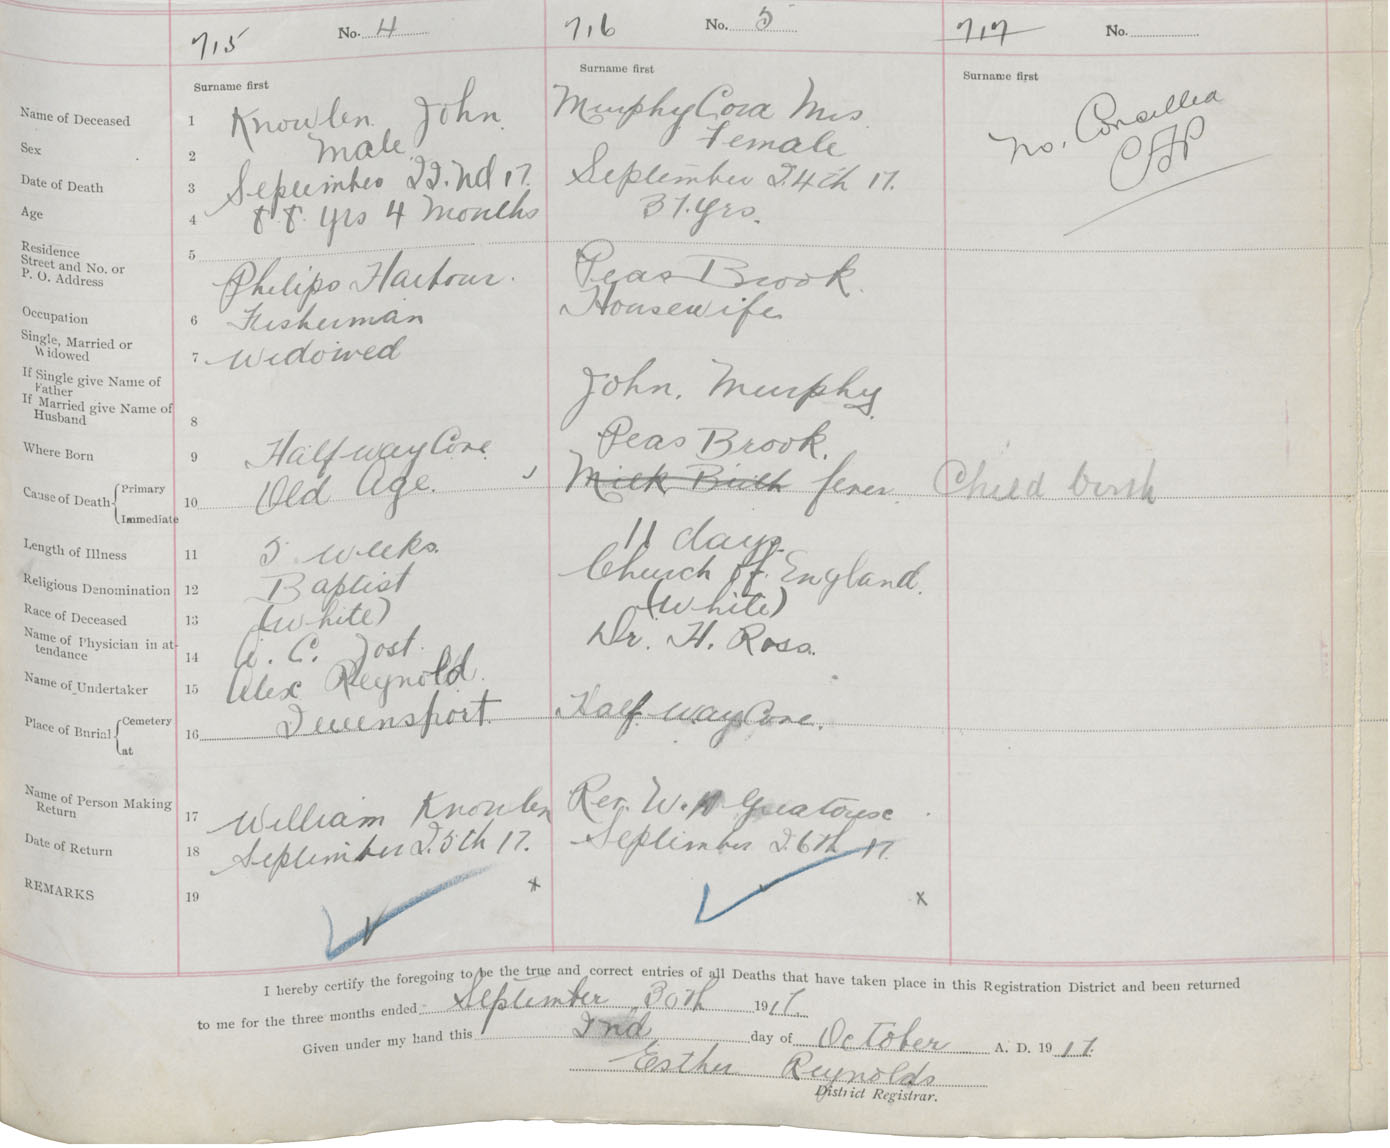 715 No. 4 716 No. 5 717 No.
Surname first Surname first Surname first
Name of Deceased 1 Knowlen John Murphy Cora Mrs. No. Cancelled
Sex 2 Male Female
Date of Death 3 September 22.nd 17. September 24th 17.
Age 4 88 yrs 4 Months 37. yrs.
Residence
Street and No. or
P. O. Address 5 Philips Harbour. Peas Brook.
Occupation 6 Fisherman Housewife
Single, Married or
Widowed 7 Widowed
If Single give Name of
Father
If Married give Name of
Husband 8 John. Murphy
Where Born 9 Half way Cove Peas Brook.
Cause of Death Primary
Immediate 10 Old Age. Milk Birth fever. Child birth
Length of Illness 11 5 weeks. 11 days.
Religious Denomination 12 Baptist Church of England.
Race of Deceased 13 (White) (White)
Name of Physician in at-
tendance 14 A. C. Jost. Dr. H. Ross.
Name of Undertaker 15 Alex Reynold.
Place of Burial Cemetery
at 16 Queensport. Half way Cove.
Name of Person Making
Return 17 William Knowlen Rev. W.
Date of Return 18 September 25th 17. September 26th 17
REMARKS 19 x x
I hereby certify the foregoing to be the true and correct entries of all Deaths that have taken place in this Registration District and been returned
to me for the three months ended September 30th 1917.
Given under my hand this 2nd day of October A. D. 1917.
Esther Reynolds
District Registrar.